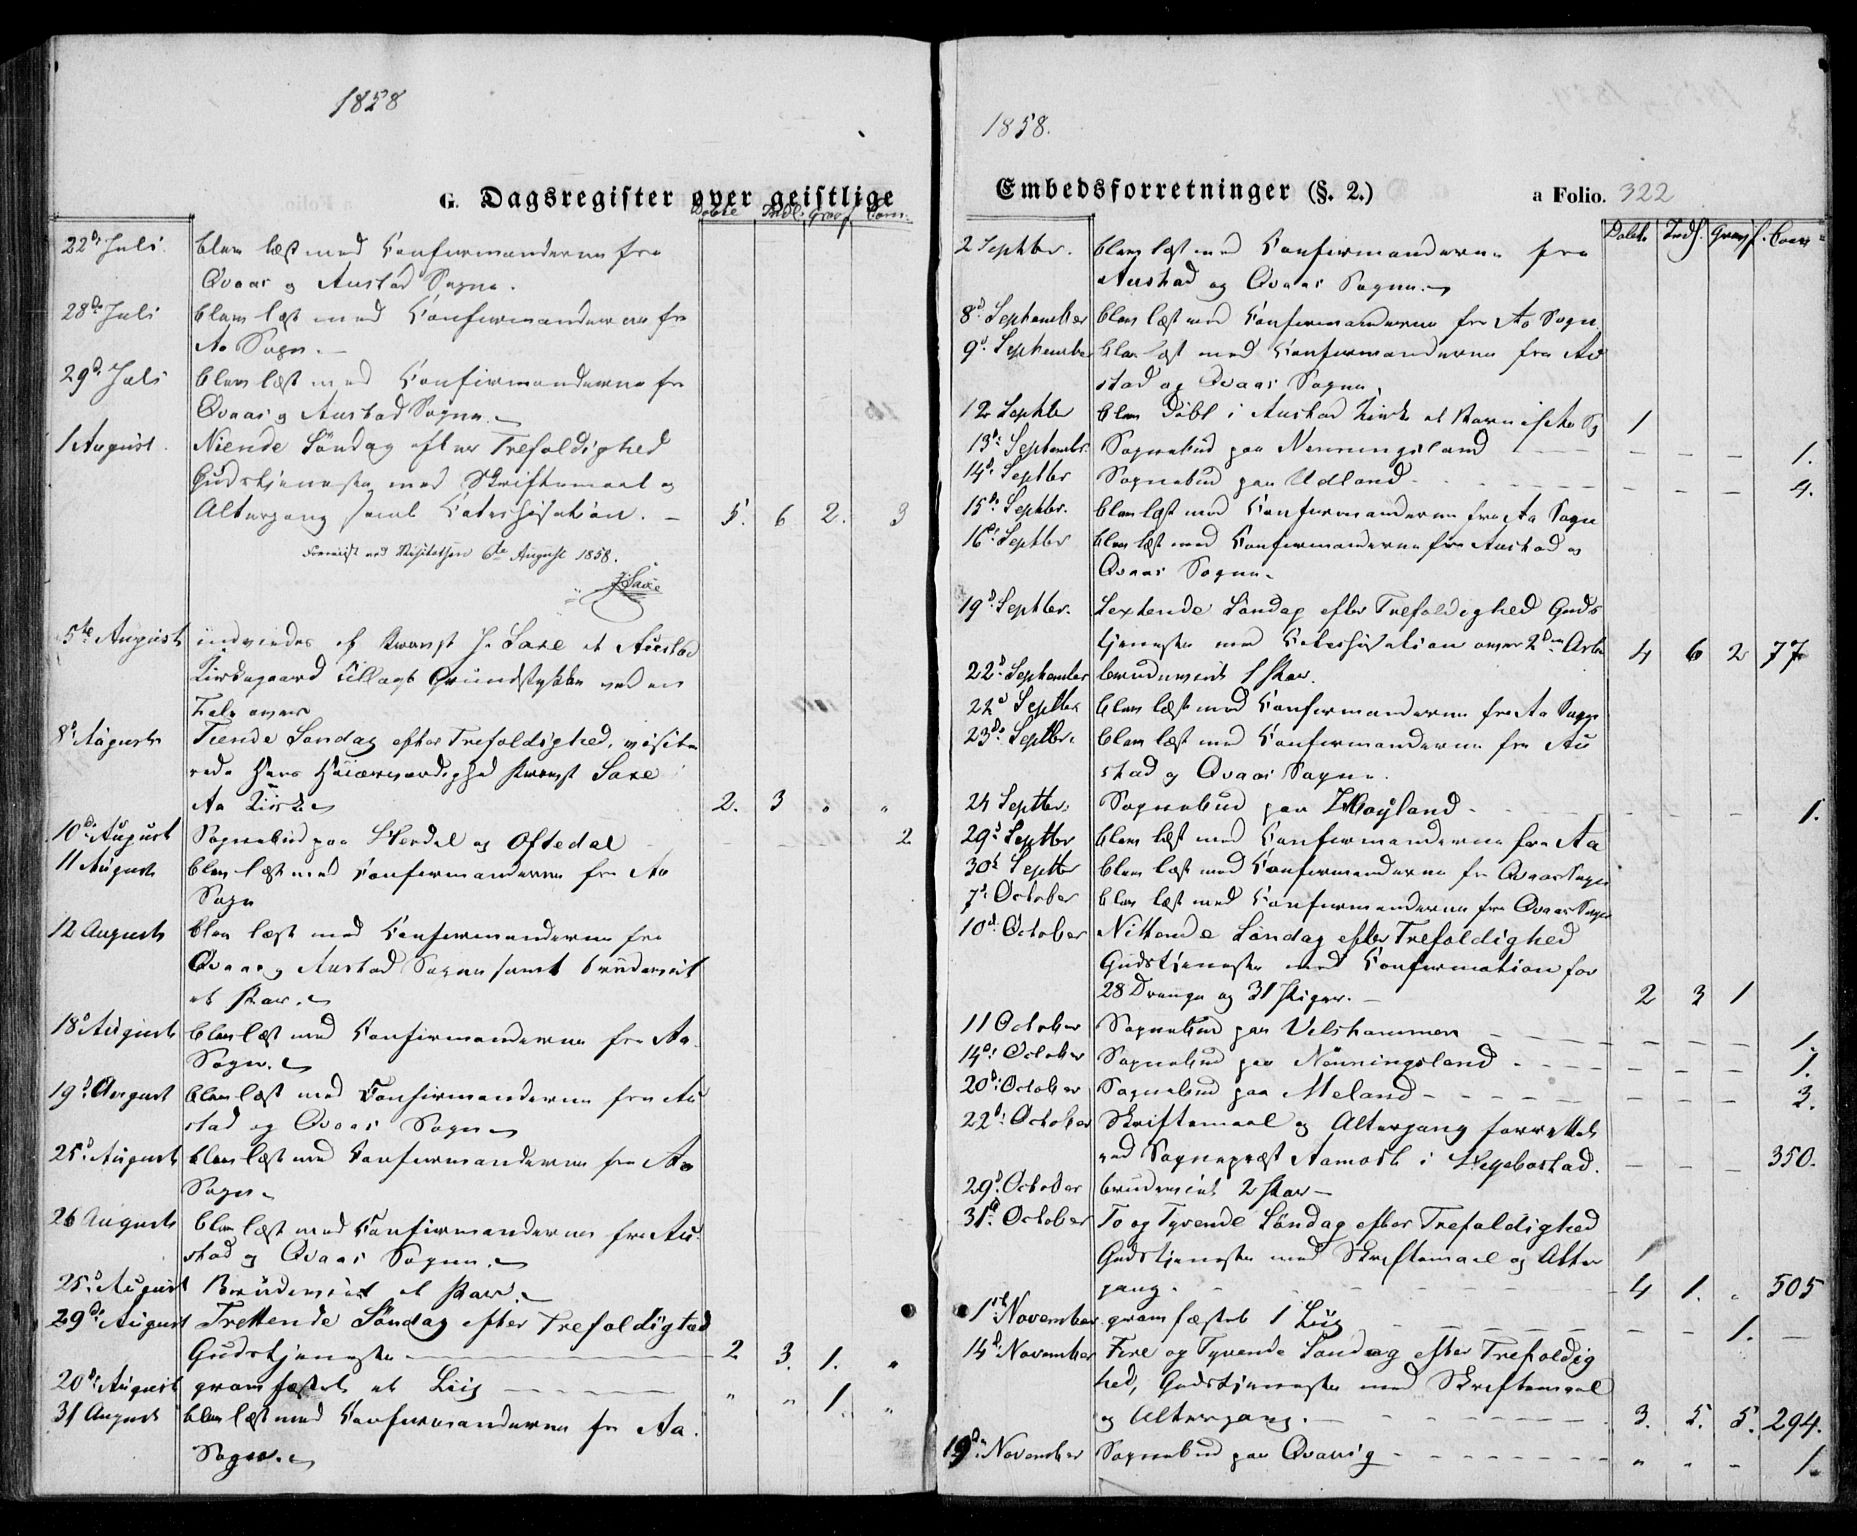 1858
G. Dagsregister over geistlige
Døbte Indl. Graf. Com.
22d Juli blev læst med Confirmanderne fra
Qvaas og Austad Sogne.
28d Juli blev læst med Confirmanderne fra
Aa Sogn. —
29d Juli blev læst med Confirmanderne fra
Qvaas og Austad Sogne.
1 August. Niende Søndag efter Trefoldighed
Gudstjeneste med Skriftemaal og
Altergang samt Catechisation. — 5. 6 2. 3
Foreviist ved Visitatsen 6te August 1858.
J. Saxe
5te August indviedes af Provst J. Saxe et Austad
Kirkegaard tillagt Grundstykke ved en
Tale over
8d August Tiende Søndag efter Trefoldighed, visite
rede Hans Høiærværdighed Provst Saxe
Aa Kirke 2. 3 " "
10d August Sognebud paa Sterdal og Oftedal 2
11 August blev læst med Confirmanderne fra Aa
Sogn
12 August blev læst med Confirmanderne fra
Qvaas og Austad Sogne samt brudeviet
et Par.
18d August blev læst med Confirmanderne fra Aa
Sogn.
19d August blev læst med Confirmanderne fra Au
stad og Qvaas Sogne
25d August blev læst med Confirmanderne fra Aa
Sogn
26 August blev læst med Confirmanderne fra Au
stad og Qvaas Sogne.
25d August Brudeviet et Par.
29d August Trettende Søndag efter Trefoldighed
Gudstjeneste — 2 3. 1. "
20d August gravfæstet et Liig " " 1. "
31 August blev læst med Confirmanderne fra Aa
Sogn.
1858.
Embedsforretninger (§. 2.)
a Folio. 322
Døbte Indl. Gravf. Com
2 Septber. blev læst med Confirmanderne fra
Austad og Qvaas Sogne.
8d September blev læst med Confirmanderne fra Aa Sogn
9d September blev læst med Confirmanderne fra Au
stad og Qvaas Sogne.
12 Septbr blev døbt i Austad Kirke et Barn af Aa Sg 1
13d September Sognebud paa Nenningsland 1.
14d Septbr Sognebud paa Udland 4.
15d Septbr. blev læst med Confirmanderne fra Aa Sogn
16d Septbr blev læst med Confirmanderne fra Austad og
Qvaas Sogne.
19d Septbr. Sextende Søndag efter Trefoldighed Guds
tjeneste med Catechisation over 2den Artik 4 6 2 77
22d September brudeviet 1 Par.
22d Septbr blev læst med Confirmanderne fra Aa Sogn
23d Septbr. blev læst med Confirmanderne fra Au
stad og Qvaas Sogne.
24 Septbr. Sognebud paa Høyland 1.
29d Septbr blev læst med Confirmanderne fra Aa
30d Septbr blev læst med Confirmanderne fra Qvaas Sogn
7d October blev læst med Confirmanderne fra Qvaas Sogn
10d October Nittende Søndag efter Trefoldighed
Gudstjeneste med Confirmation for
28 Drenge og 31 Piger. — 2 3 1
11 October Sognebud paa Velshammen 1.
14d October Sognebud paa Nönningsland 1.
20d October Sognebud paa Meland 3.
22d October Skriftemaal og Altergang forrettet
ved Sognepræst Aamodt i Hegebostad. 350.
29d October brudeviet 2 Par —
31d October To og Tyvende Søndag efter Trefoldighed
Gudstjeneste med Skriftemaal og Alter 1
gang. 4 1. " 505
1ste November gravfæstet 1 Liig 1. —
14d November Fire og Tyvende Søndag efter Trefoldig
hed, Gudstjeneste med Skriftemaal
og Altergang. 3. 5. 5. 294.
19d November Sognebud paa Qvavig " " " 1.